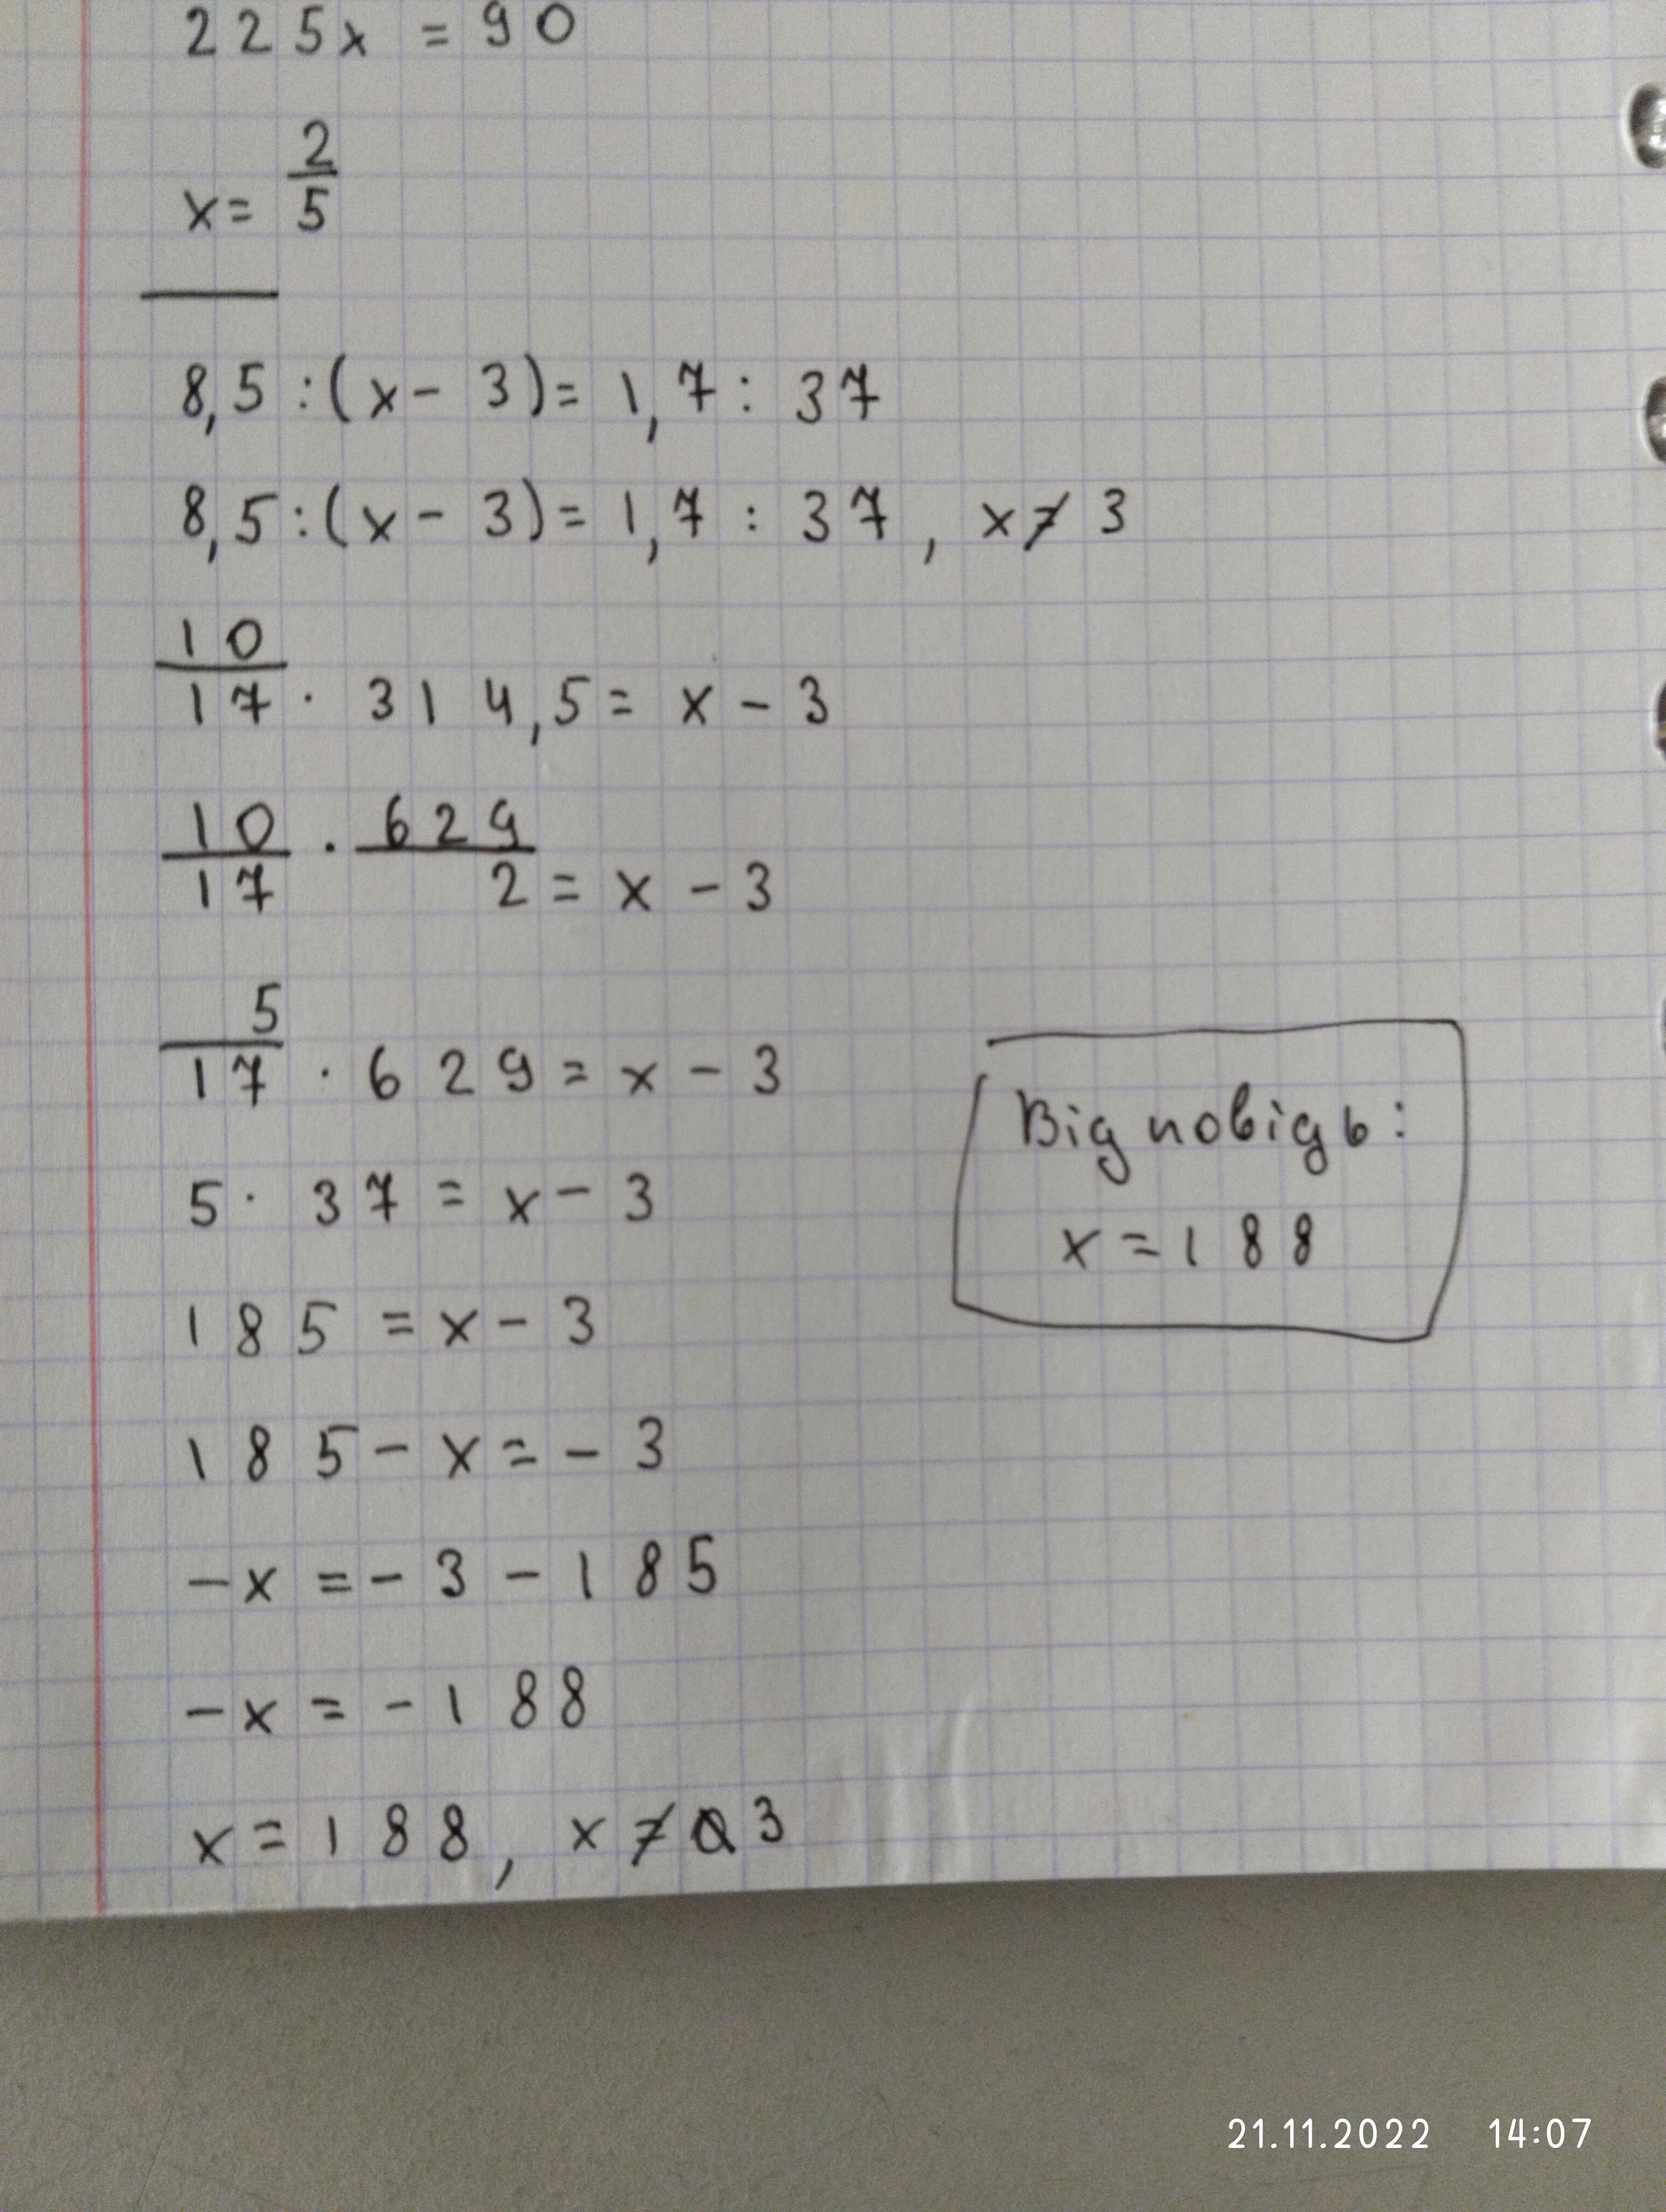 225x = 90
x = 2/5
8,5 : (x - 3) = 1,7 : 37
8,5 : (x - 3) = 1,7 : 37, x ≠ 3
10/17 · 314,5 = x - 3
10/17 · 629/2 = x - 3
5/17 · 629 = x - 3
5 · 37 = x - 3
185 = x - 3
185 - x = - 3
-x = - 3 - 185
-x = - 188
x = 188, x ≠ 3
Відповідь:
x = 188
21.11.2022 14:07